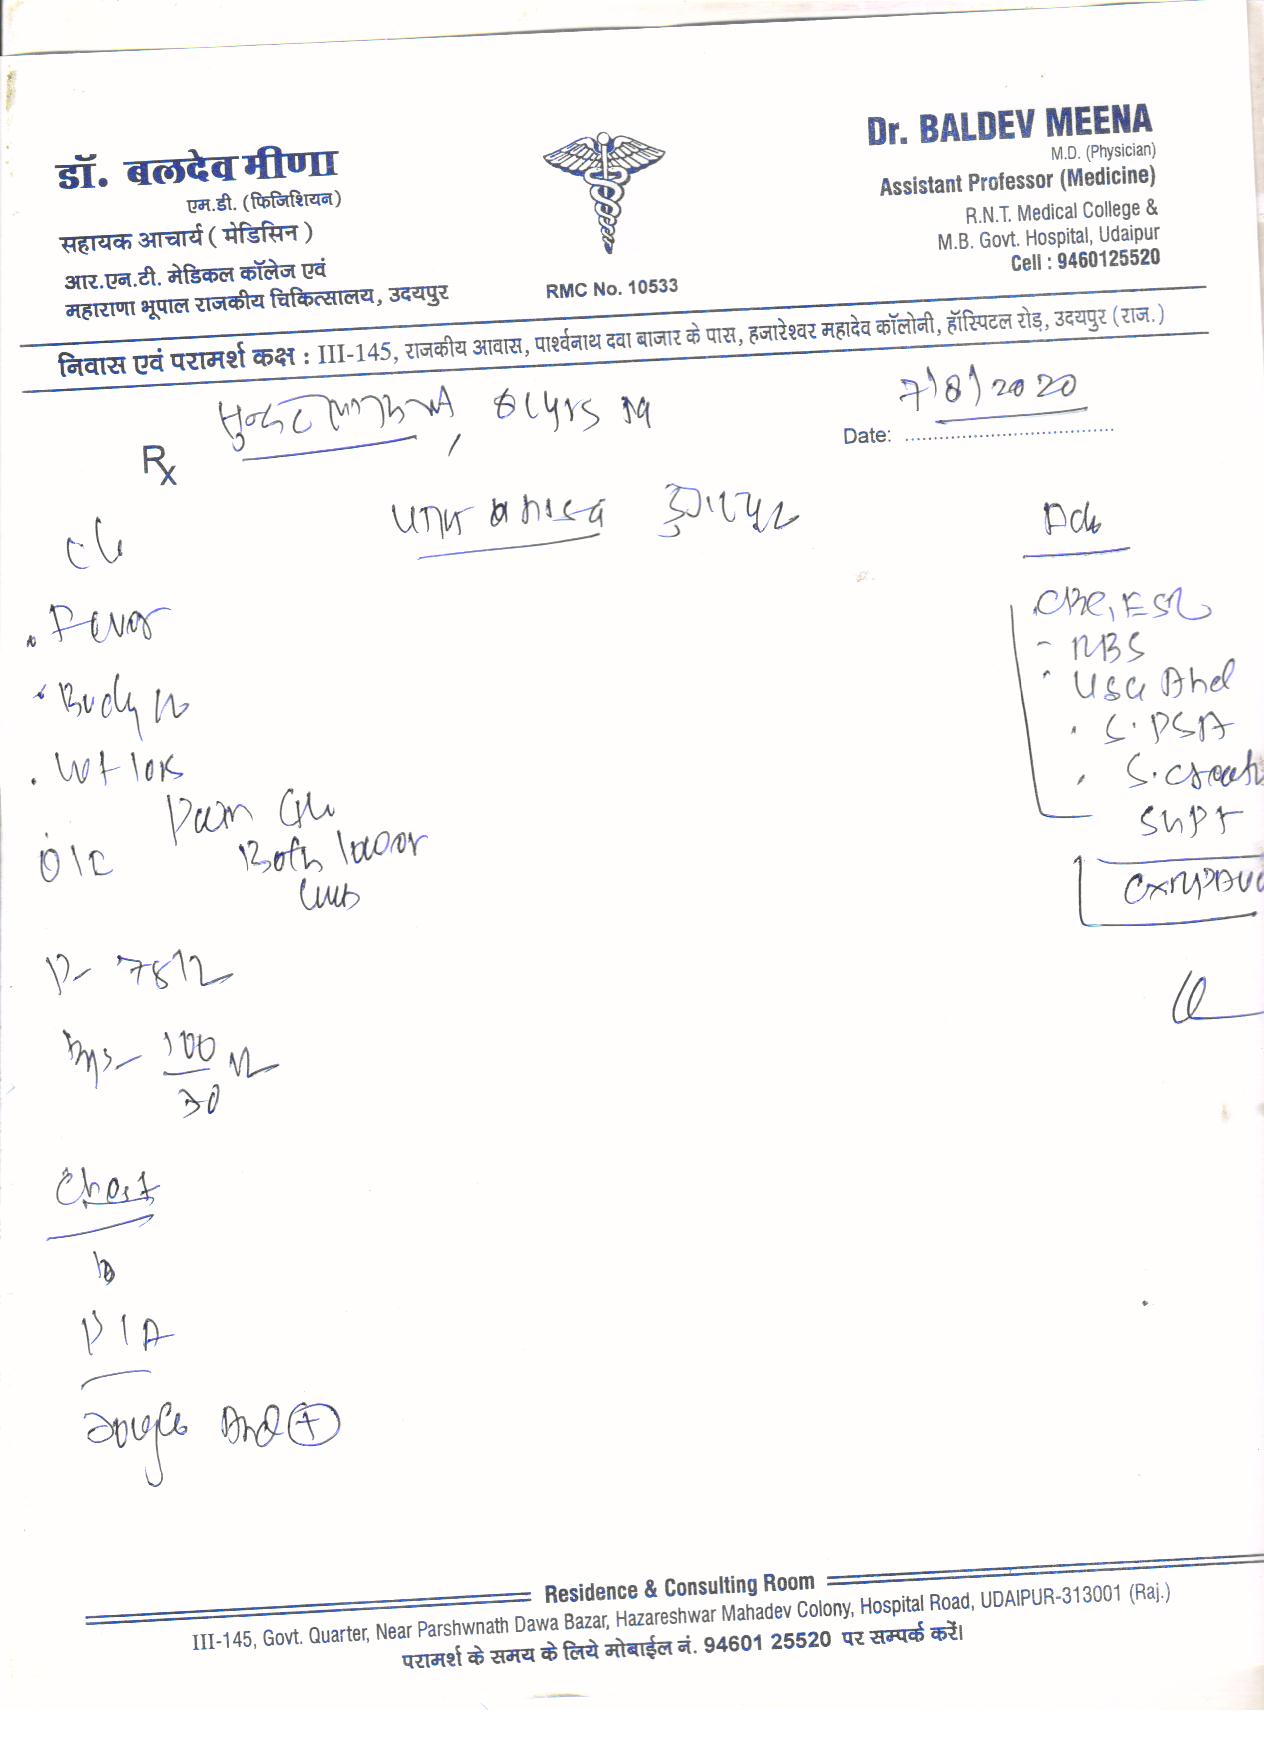 डॉ. बलदेव मीणा
एम.डी. (फिजिशियन)
सहायक आचार्य ( मेडिसिन )
आर.एन.टी. मेडिकल कॉलेज एवं
महाराणा भूपाल राजकीय चिकित्सालय, उदयपुर
RMC No. 10533
Dr. BALDEV MEENA
M.D. (Physician)
Assistant Professor (Medicine)
R.N.T. Medical College &
M.B. Govt. Hospital, Udaipur
Cell : 9460125520
निवास एवं परामर्श कक्ष : III-145, राजकीय आवास, पार्श्वनाथ दवा बाजार के पास, हजारेश्वर महादेव कॉलोनी, हॉस्पिटल रोड़, उदयपुर (राज.)
61yrs M
7/8/2020
Date:
Rx
Adv
Fever
Body
Wt loss
Pain
Both lower
limb
O/E
P- 78/
100
30
Chest
P/A
Abd +
CBC, ESR
- RBS
USG Abd
S. PSA
S. Creat
CXR PA
Residence & Consulting Room
III-145, Govt. Quarter, Near Parshwnath Dawa Bazar, Hazareshwar Mahadev Colony, Hospital Road, UDAIPUR-313001 (Raj.)
परामर्श के समय के लिये मोबाईल नं. 94601 25520 पर सम्पर्क करें।